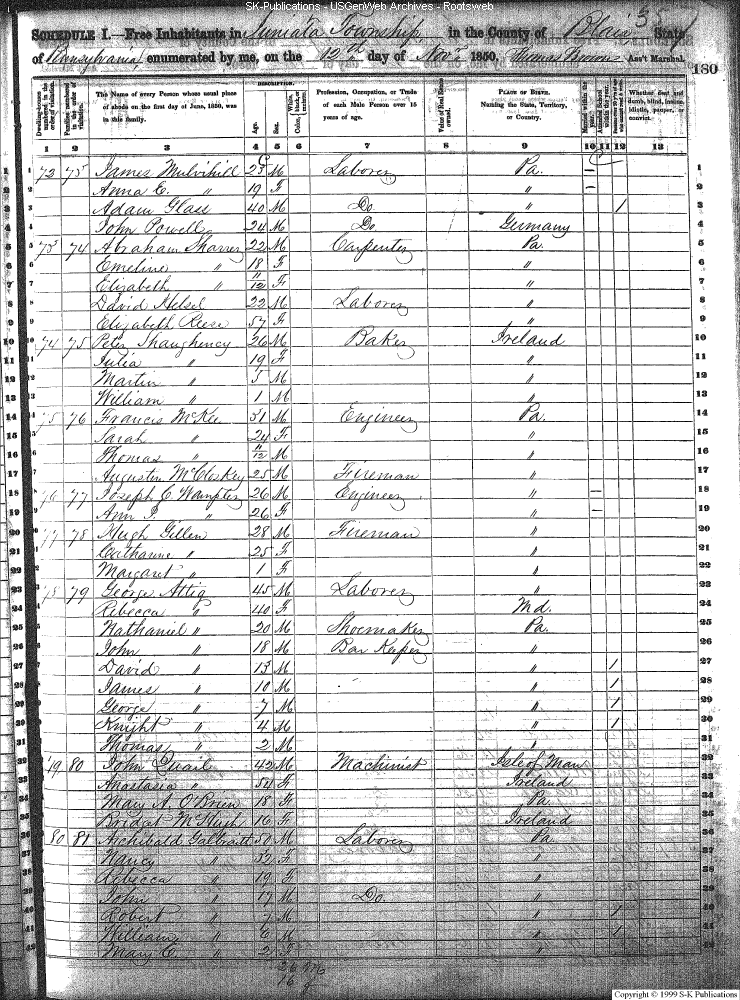 SK-Publications - USGenWeb Archives - Rootsweb
35
SCHEDULE I.—Free Inhabitants in Juniata Township in the County of Blair State
of Pennsylvania enumerated by me, on the 12th day of Novr 1850, Thomas Brown Ass't Marshal. 180
DESCRIPTION.
Dwelling-houses numbered in the order of visitation. Families numbered in the order of visitation. The Name of every Person whose usual place of abode on the first day of June, 1850, was in this family. Age. Sex. Color, White, black, or mulatto. Profession, Occupation, or Trade of each Male Person over 15 years of age. Value of Real Estate owned. PLACE OF BIRTH. Naming the State, Territory, or Country. Married within the year. Attended School within the year. Whether deaf and dumb, blind, insane, idiotic, pauper, or convict.
1 2 3 4 5 6 7 8 9 10 11 12 13
1 72 73 James Mulvihill 23 M Laborer Pa. 1
2 Anna C. " 19 F " 2
3 Adam Glass 40 M Do " / 3
4 John Powell 24 M Do Germany 4
5 73 74 Abraham Sharrer 22 M Carpenter Pa. 5
6 Emeline " 18 F " 6
7 Elizabeth " 11/12 F " 7
8 David Helsel 22 M Laborer " 8
9 Elizabeth Reese 57 F " 9
10 74 75 Peter Shaughency 26 M Baker Ireland 10
11 Julia " 19 F " 11
12 Martin " 5 M " 12
13 William " 1 M " 13
14 75 76 Francis McKee 31 M Engineer Pa. 14
15 Sarah " 24 F " 15
16 Thomas " 11/12 M " 16
17 Augustin McCloskey 25 M Fireman " 17
18 76 77 Joseph C Wampler 26 M Engineer " 18
19 Ann " 26 F " 19
20 77 78 Hugh Gillen 28 M Fireman " 20
21 Catharine " 25 F " 21
22 Margaret " 1 F " 22
23 78 79 George Attig 45 M Laborer " 23
24 Rebecca " 40 F Md. 24
25 Nathaniel " 20 M Shoemaker Pa. 25
26 John " 18 M Bar Keeper " 26
27 David " 13 M " / 27
28 James " 10 M " / 28
29 George " 7 M " / 29
30 Knight " 4 M " / 30
31 Thomas " 2 M " 31
32 79 80 John Quail 42 M Machinist Isle of Man 32
33 Anastasia " 54 F Ireland 33
34 Mary A. O'Brien 18 F Pa. 34
35 Bridget McHugh 16 F Ireland 35
36 80 81 Archibald Galbraith 50 M Laborer Pa. 36
37 Nancy " F " 37
38 Rebecca " 19 F " 38
39 John " 17 M Do. " 39
40 Robert " 7 M " / 40
41 William " 6 M " / 41
42 Mary C " 2 F " 42
26 M
16 f
Copyright © 1999 S-K Publications